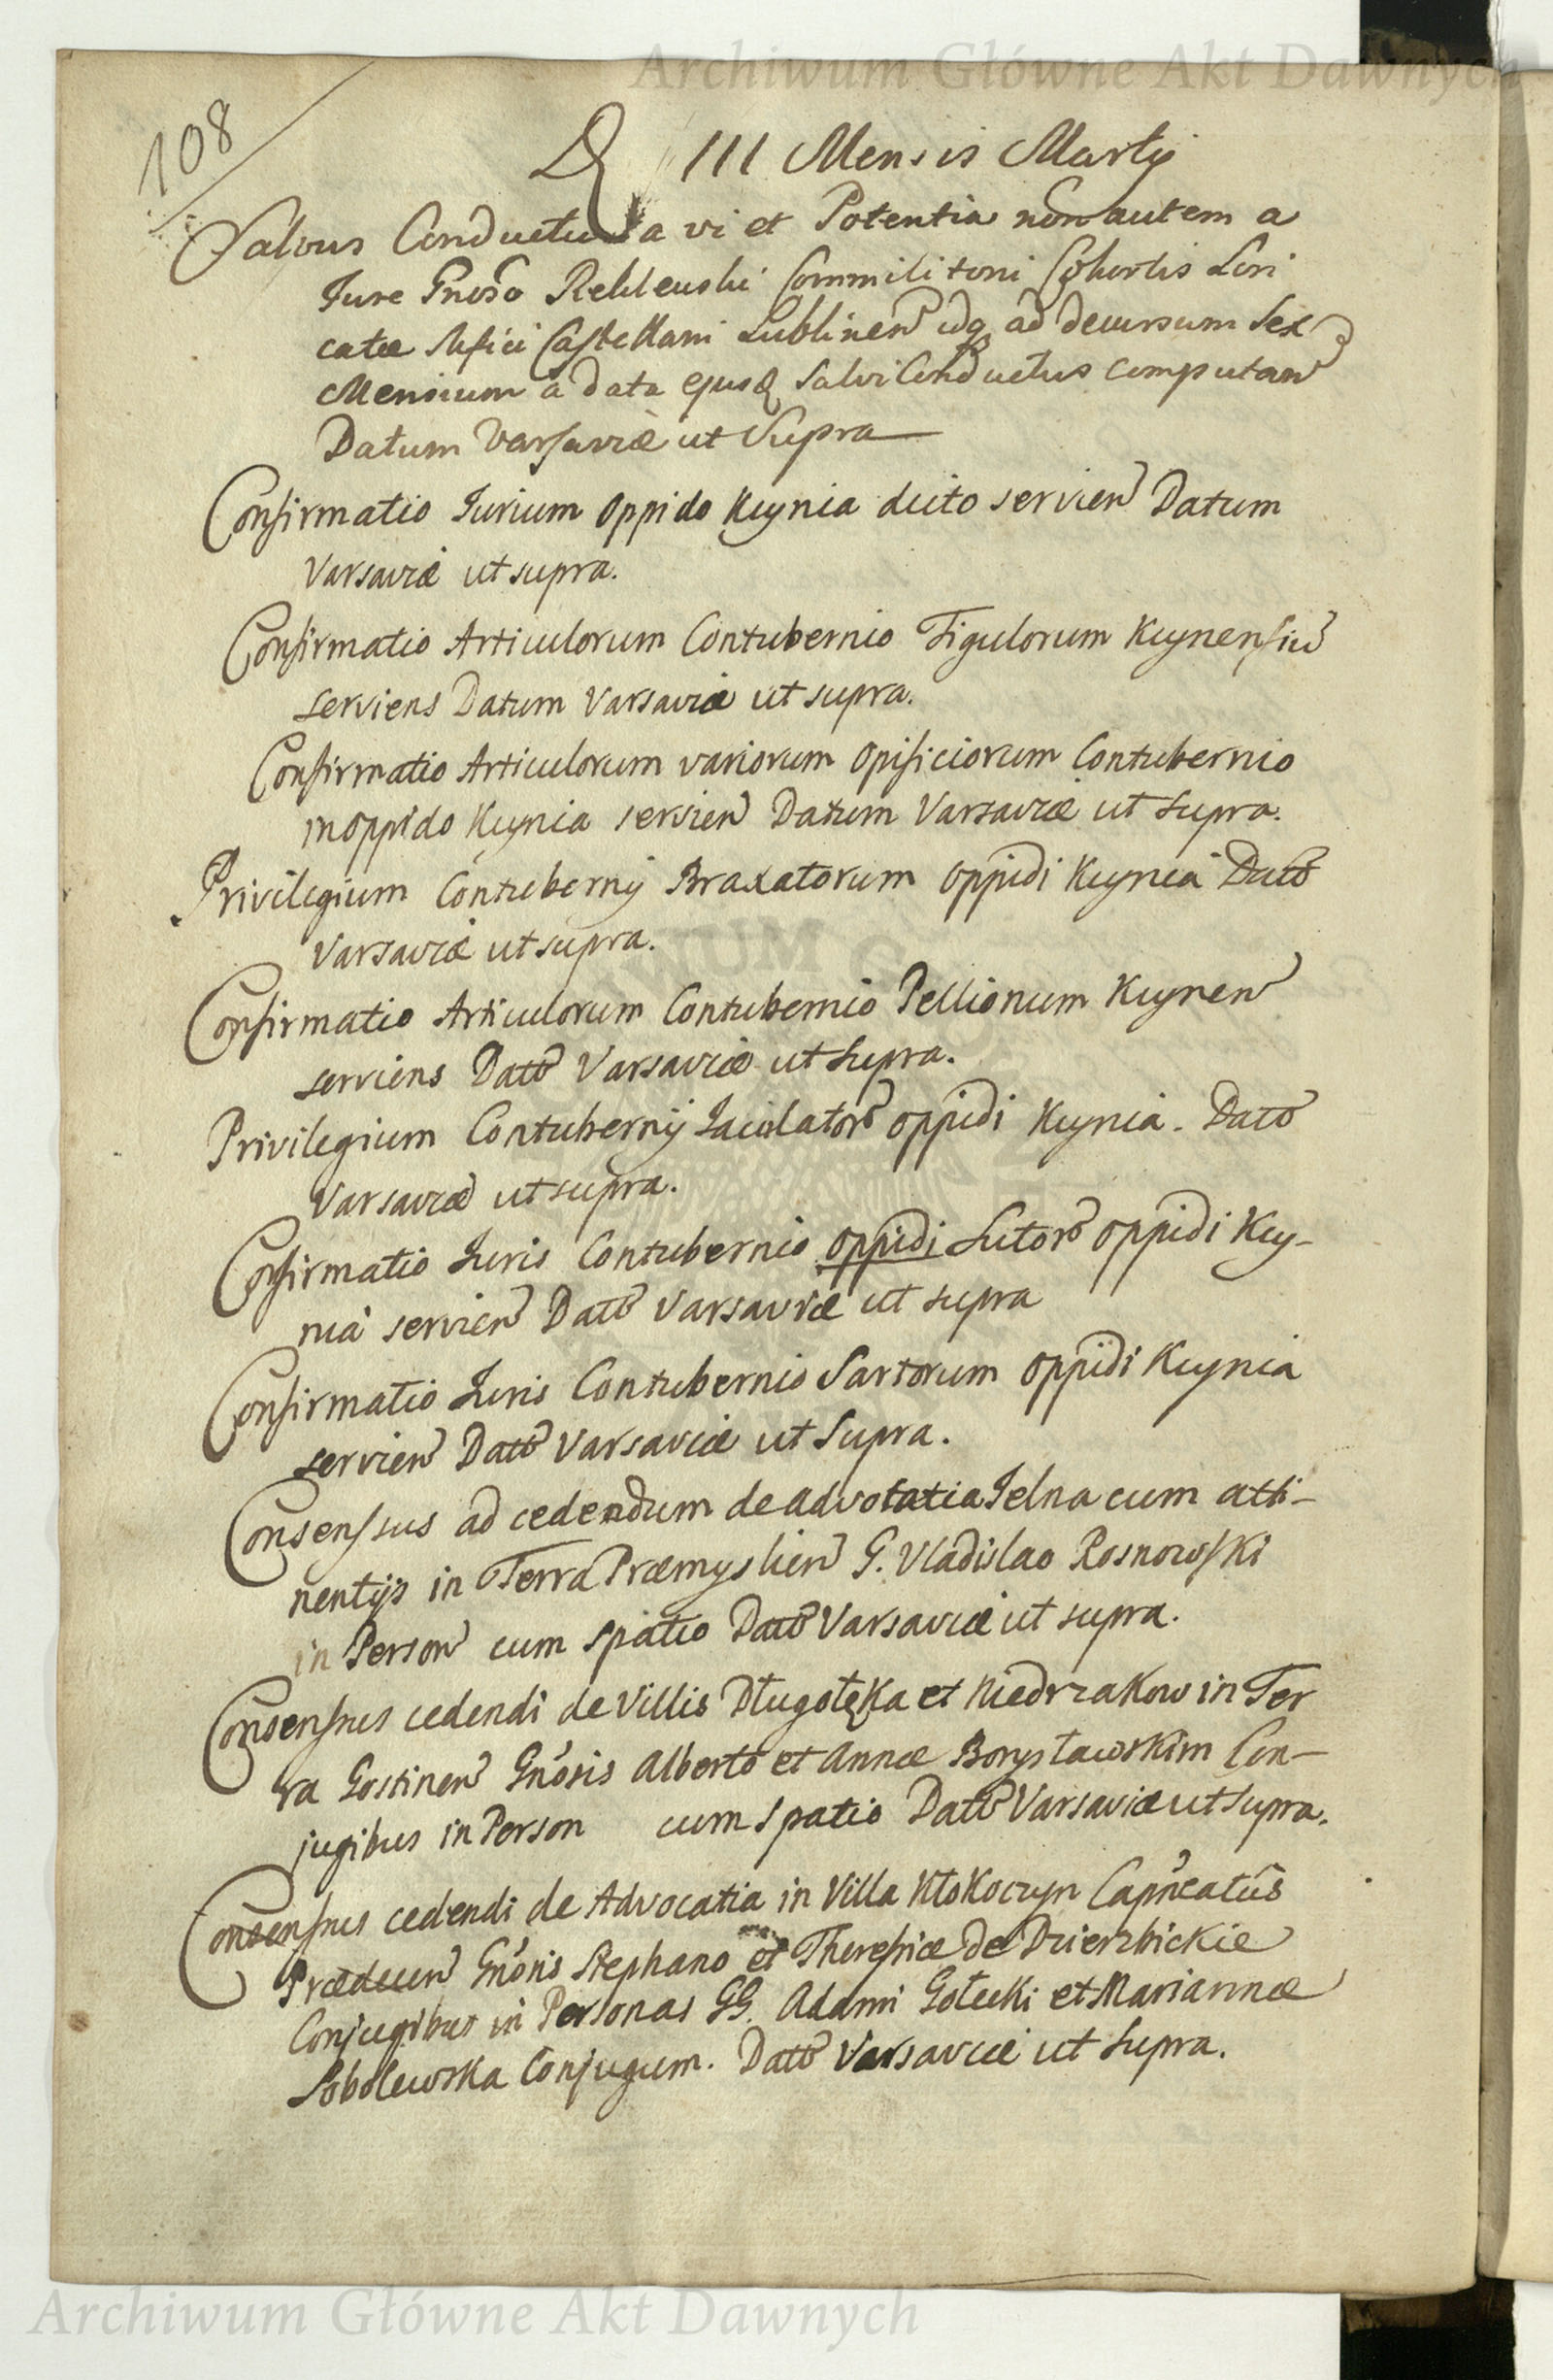 Archiwum Główne Akt Dawnych
108
D III Mensis Martij
Salvus Conductus a vi et Potentia non autem a
Jure Gnoso Commilitoni Cohortis Lori
catae Mfici Castellani Lublinen idq ad decursum Sex
Mensium a data ejusd Salvi Conductus computan
Datum Varsaviae ut Supra
Confirmatio Jurium Oppido Kcynia dicto servien Datum
Varsaviae ut supra.
Confirmatio Articulorum Contubernio Figulorum Kcynensiu
serviens Datum Varsaviae ut supra.
Confirmatio Articulorum variorum Opificiorum Contubernio
in oppido Kcynia servien Datum Varsaviae ut Supra.
Privilegium Contubernij Braxatorum oppidi Kcynia Datt
Varsaviae ut supra.
Confirmatio Articulorum Contubernio Pellionum Kcynen
serviens Datt Varsaviae ut Supra.
Privilegium Contubernij Jaculator oppidi Kcynia. Datt
Varsaviae ut supra.
Confirmatio Juris Contubernio oppidi Sutor oppidi Kcy-
nia servien Datt Varsaviae ut supra
Confirmatio Juris Contubernio Sartorum oppidi Kcynia
servien Datt Varsaviae ut Supra.
Consensus ad cedendum de advocatia Jelna cum atti-
nentijs in Terra Praemyslien G. Vladislao Rosnowski
in Person cum spatio Datt Varsaviae ut supra.
Consensus cedendi de Villis Długołęka et Niedrzakow in Ter
ra Gostinen Gnosis Alberto et Annae Borysławskim Con-
jugibus in Person cum spatio Datt Varsaviae ut Supra.
Consensus cedendi de Advocatia in Villa Kłokoczyn Capneatus
Gnosis Stephano et Theresiae de Dzierzbickie
Conjugibus in Personas GG. Adami Gołecki et Mariannae
Sobolewska Conjugum. Datt Varsaviae ut Supra.
Archiwum Główne Akt Dawnych